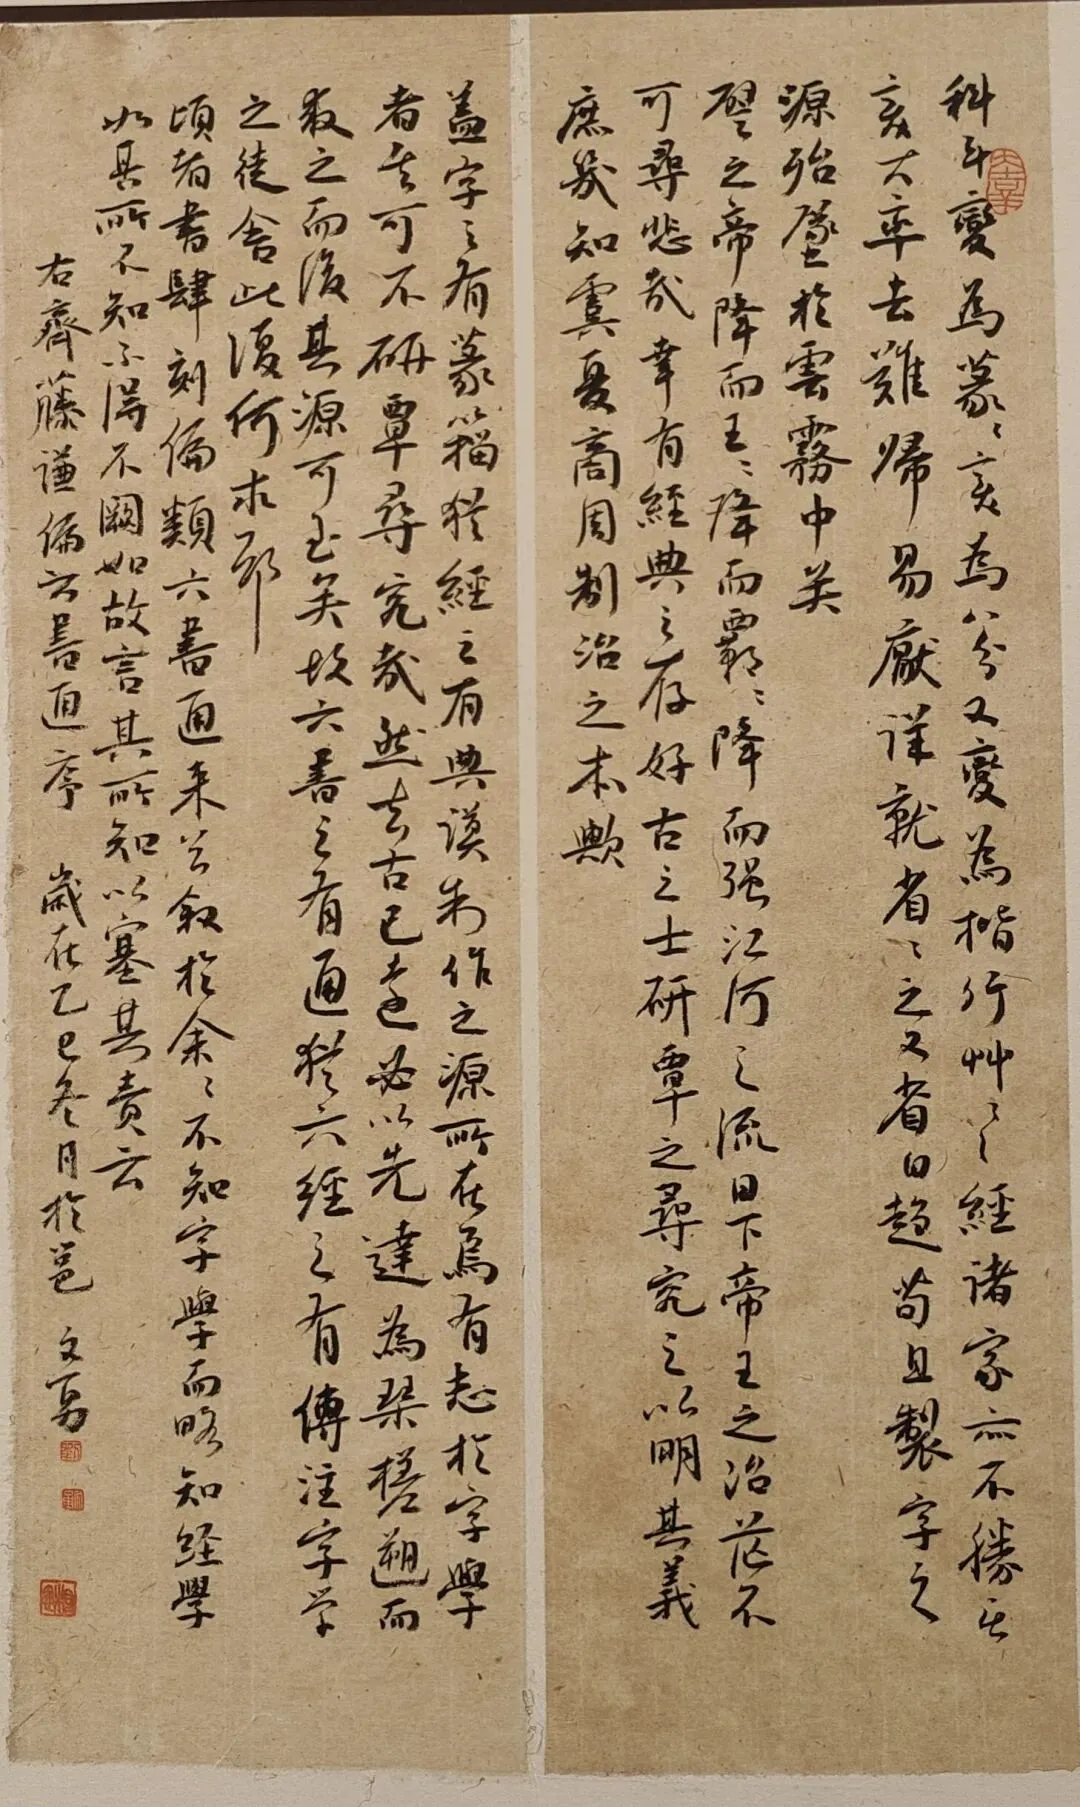 科斗變為篆〻變為八分又變為楷行艸〻之經諸家亦不勝其
變大率去難歸易厭詳就省〻之又省日趨苟且製字之
源殆墜於雲霧中矣
譬之帝降而王〻降而霸〻降而强江河之流日下帝王之治茫不
可尋悲哉幸有經典之存好古之士研覃之尋究之以明其義
庶幾知虞夏商周制治之本歟
蓋字之有篆籀猶經之有典謨制作之源所在焉有志於字學
者其可不研覃尋究哉然去古已遠必以先達為梁榿遡而
求之而後其源可至矣故六書之有通猶六經之有傳注字学
之徒舍此復何求耶
頃者書肆刻偏類六書通来公叙於余〻不知字學而略知経學
如其所不知不得不闕如故言其所知以塞其責云
右齊藤谦偏六書通序 歲在乙巳冬月於邕 文勇